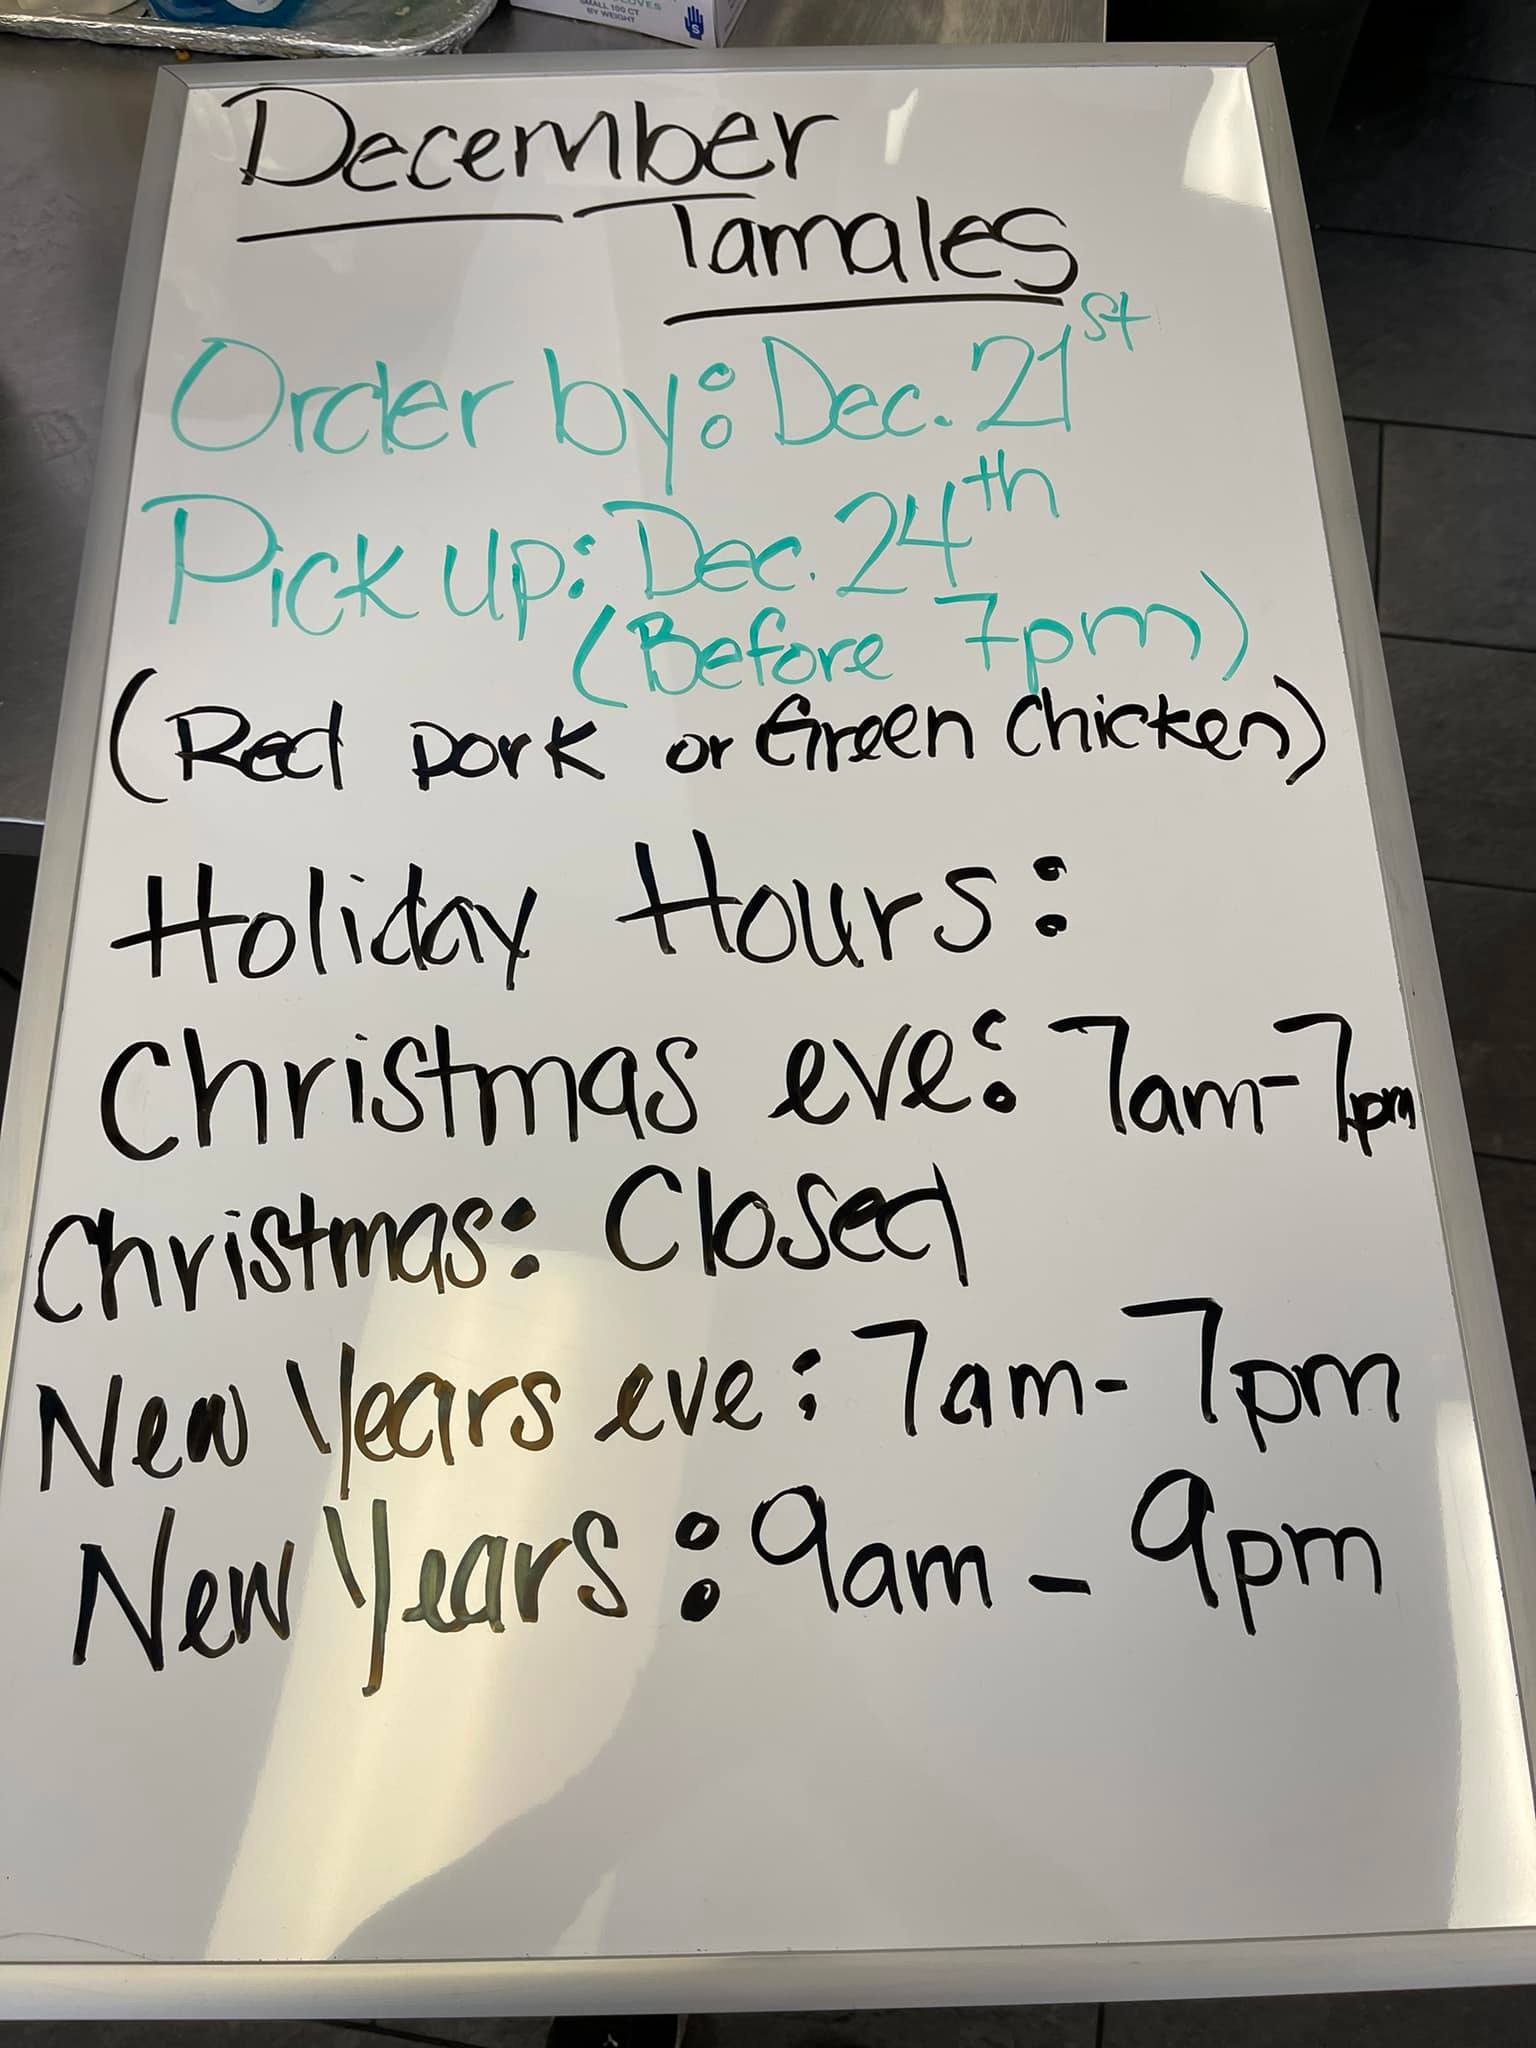 GLOVES
SMALL 100 CT
BY WEIGHT
S
December
Tamales
Order by: Dec. 21st
Pick up: Dec. 24th
(Before 7pm)
(Red pork or Green chicken)
Holiday Hours:
Christmas eve: 7am-7pm
Christmas: Closed
New Years eve: 7am-7pm
New Years: 9am - 9pm